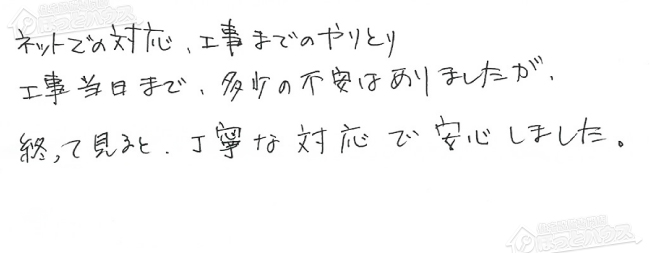 ネットでの対応、工事までのやりとり
工事当日まで、多少の不安はありましたが、
終って見ると、丁寧な対応で安心しました。